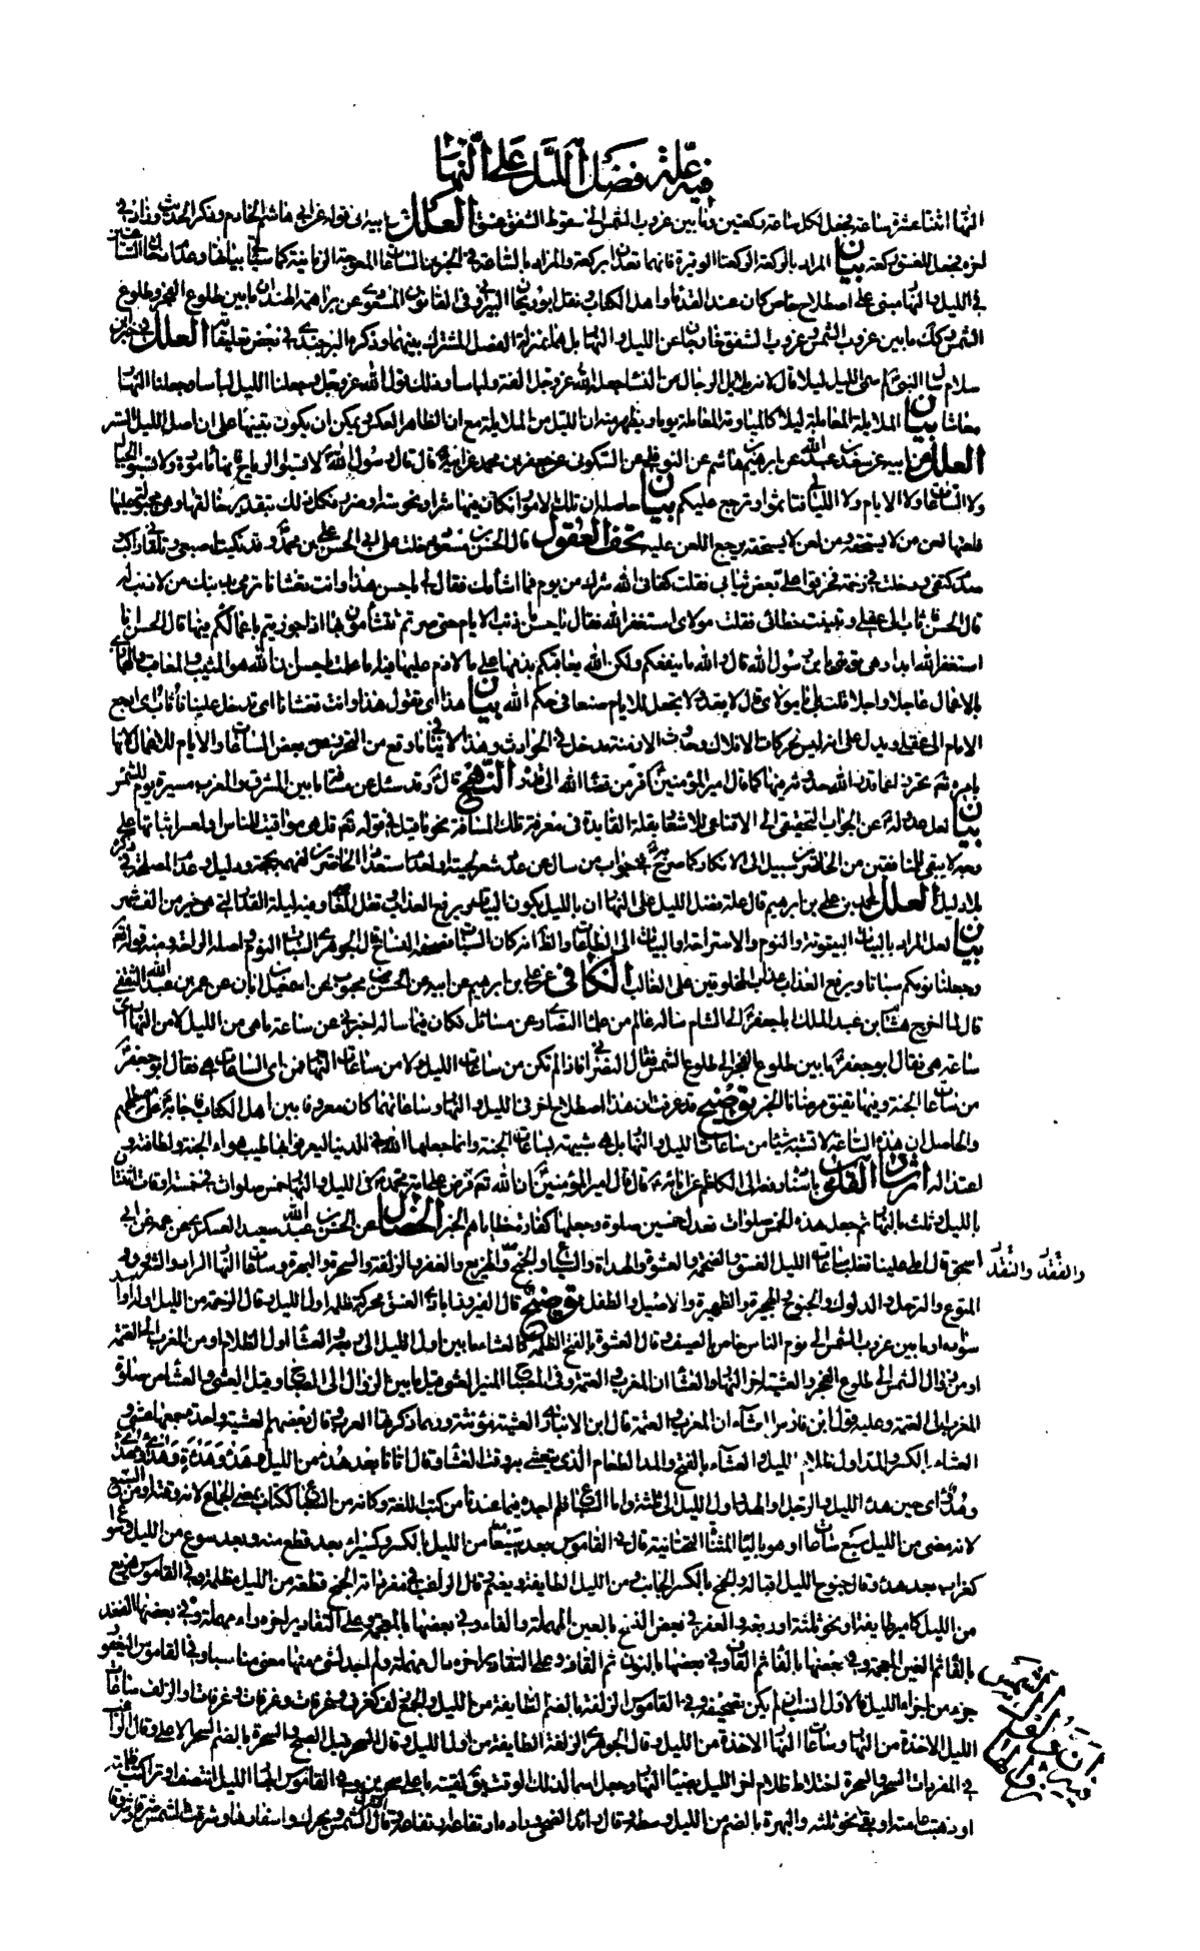 فيه علة فضل الليل على النهار
النهار اثنتا عشرة ساعة فجعل لكل ساعة ركعتين وما بين غروب الشمس الى سقوط الشفق غسق العلل عن ابيه الى قوله عن ابي هاشم الخادم وذكر الحديث وزاد في
اخره فجعل للغسق ركعة بيان المراد بالركعة الركعتا الوتيرة فانهما تعدان بركعة والمراد بالساعة في الخبرين الساعات المعوجة الزمانية كما سيأتي بيانها وعدم ادخال الساعتين
في الليل والنهار مبنى على اصطلاح خاص كان عند القدماء واهل الكتاب ونقل ابو ريحان البيروني في القانون المسعودي عن براهمة الهند ان ما بين طلوع الفجر وطلوع
الشمس وكذلك ما بين غروب الشمس وغروب الشفق خارجان عن الليل والنهار بل هما بمنزلة الفصل المشترك بينهما وذكره البرجندي في بعض تعليقاته العلل في خبر ابن
سلام سأل النبي لم سمى الليل ليلا قال لانه يلايل الرجال من النساء جعله الله عز وجل الفة ولباسا وذلك قول الله عز وجل وجعلنا الليل لباسا وجعلنا النهار
معاشا بيان الملايلة المعاملة ليلا كالمياومة المعاملة يوما ويظهر منه ان الليل من الملايلة مع ان الظاهر العكس ويمكن ان يكون تنبيها على ان اصل الليل الستر
العلل عن ابيه عن سعد بن عبد الله عن ابراهيم بن هاشم عن النوفلي عن السكوني عن جعفر بن محمد عن ابيه قال قال رسول الله لا تسبوا الرياح فانها مأمورة ولا تسبوا الجبال
ولا الساعات ولا الايام ولا الليالي فتأثموا وترجع عليكم بيان حاصله ان تلك الامور ان كان فيها شر او نحوسة او ضرر فكل ذلك بتقدير خالقها وهي مجبولة عليها
فلعنها لعن من لا يستحقه ومن لعن من لا يستحقه يرجع اللعن عليه تحف العقول قال الحسن بن مسعود دخلت على ابي الحسن علي بن محمد وقد نكبت اصبعي وتلقاني راكب
صدم كتفي ودخلت في زحمة فخرقوا على بعض ثيابي فقلت كفاني الله شرك من يوم فما اشأمك فقال لي يا حسن هذا وانت تغشانا ترمي بذنبك من لا ذنب له
قال الحسن فاثاب الي عقلي وتبينت خطائي فقلت مولاي استغفر الله فقال يا حسن ما ذنب الايام حتى صرتم تتشأمون بها اذا جوزيتم باعمالكم فيها قال الحسن انا
استغفر الله ابدا وهي توبتي يا بن رسول الله قال والله ما ينفعكم ولكن الله يعاقبكم بذمها على ما لا ذم عليها فيه اما علمت يا حسن ان الله هو المثيب والمعاقب والمجازي
بالاعمال عاجلا واجلا قلت بلى يا مولاي قال لا تعد ولا تجعل للايام صنعا في حكم الله بيان هذا اي تقول هذا وانت تغشانا اي تدخل علينا فاثاب اي ارجع
الامام الى عقلي ويدل على انه ليس لحركات الافلاك وحدوث الازمنة مدخل في الحوادث وهذا لا ينافي ما وقع من التحرز عن بعض الساعات والايام للاعمال لانها
بامره تعالى تحرزا عما قدر الله حدوثه فيها كما قال امير المؤمنين افر من قضاء الله الى قدره النهج قال وقد سئل عن مسافة ما بين المشرق والمغرب مسيرة يوم للشمس
بيان لعل عدوله عن الجواب الحقيقي الى الاقناعي للاشعار بقلة الفايدة في معرفة تلك المسافة نحو ما قيل في قوله تعالى قل هي مواقيت للناس او لعسر اثباتها على
وجه لا يبقى للمنافقين من الحاضرين سبيل الى الانكار كما صرح به في جواب من سال عن عدد شعر لحيته او لعدم استعداد الحاضرين لفهمه بحجة ودليل وعدم المصلحة في ذكره
بلا دليل العلل لمحمد بن علي بن ابراهيم قال علة فضل الليل على النهار ان بالليل يكون البيات ويرفع العذاب وتقل المعاصي وفيه ليلة القدر التي هي خير من الف شهر
بيان لعل المراد بالبيات البيتوتة والنوم والاستراحة او البيات الى الطاعات والظاهر انه كان السبات فصحفه النساخ قال الجوهري السبات النوم واصله الراحة ومنه قوله تعالى
وجعلنا نومكم سباتا ويرفع العذاب عذاب المخلوقين على الغالب الكافي عن علي بن ابراهيم عن ابيه عن الحسن بن محبوب عن اسمعيل بن ابان عن عمر بن عبد الله الثقفي
قال لما اخرج هشام بن عبد الملك ابا جعفر الى الشام ساله عالم من علماء النصارى عن مسائل فكان فيما ساله اخبرني عن ساعة ما هي من الليل ولا من النهار اي
ساعة هي فقال ابو جعفر ما بين طلوع الفجر الى طلوع الشمس فقال النصراني فاذا لم تكن من ساعات الليل ولا من ساعات النهار فمن اي الساعات هي فقال ابو جعفر
من ساعات الجنة وفيها تفيق مرضانا الخبر توضيح قد عرفت ان هذا اصطلاح اخر في الليل والنهار وساعاتهما كان معروفا بين اهل الكتاب فاجابه على مصطلحهم
والحاصل ان هذه الساعة لا تشبه شيئا من ساعات الليل والنهار بل هي شبيهة بساعات الجنة وانما جعلها الله في الدنيا ليعرفوا بها طيب هواء الجنة ولطافته و
اعتداله ارشاد القلوب باسناده الى الكاظم عن ابائه قال قال امير المؤمنين ان الله تعالى فرض على امة محمد في الليل والنهار خمس صلوات في خمسة اوقات اثنتان
بالليل وثلث بالنهار ثم جعل هذه الخمس صلوات تعدل خمسين صلوة وجعلها كفارة خطاياهم الخبر الخصال عن الحسن بن عبد الله بن سعيد العسكري عن عمه عن ابي
اسحق قال املى علينا تغلب ساعات الليل الغسق والفحمة والعشوة والهدأة والسباع والجنح والهزيع والعفر والزلفة والسحرة والبهرة وساعات النهار الراد والشروق و
والفقد والنقد
المتوع والترجل والدلوك والجنوح والهجيرة والظهيرة والاصيل والطفل توضيح قال الفيروزآبادي الغسق محركة ظلمة اول الليل وقال الفحمة من الليل اوله او اشد
سواده او ما بين غروب الشمس الى نوم الناس خاص بالصيف وقال العشوة بالفتح الظلمة كالعشاء ما بين اول الليل الى ربعه والعشاء اول الظلام او من المغرب الى العتمة
او من زوال الشمس الى طلوع الفجر والعشية اخر النهار والعشاآن المغرب والعتمة وفي المصباح المنير العشي قيل ما بين الزوال الى الصباح وقيل العشي والعشاء من صلوة
المغرب الى العتمة وعليه قول ابن فارس العشاآن المغرب والعتمة قال ابن الانباري العشية مؤنثة وربما ذكرتها العرب وقال بعضهم العشية واحدة جمعها عشي و
العشاء بالكسر والمد اول ظلام الليل والعشاء بالفتح والمد الطعام الذي يتعشى به وقت العشاء وقال اتانا بعد هدء من الليل وهدء وهدأة
اي حين هدأ الليل والرجل او الهدء اول الليل الى ثلثه واما السباع فلم اجده فيما عندنا من كتب اللغة وكانه من السباع ككتاب بمعنى الجماع لانه وقته او من السبع
لانه مضى من الليل سبع ساعات او هو بالياء المثناة التحتانية قال في القاموس بعد سيعاء من الليل بالكسر وكسيراء بعد قطع منه وبعد سوع من الليل وسواع
كغراب بعد هدء وقال جنوح الليل اقباله والجنح بالكسر الجانب ومن الليل الطايفة ويضم وقال الراغب في مفرداته الجنح قطعة من الليل مظلمة وفي القاموس هزيع
من الليل كامير طايفة او نحو ثلثه او ربعه والعفر في بعض النسخ بالعين المهملة والفاء وفي بعضها بالمعجمة وعلى التقادير اخره راء مهملة وفي بعضها الفقد
بالفاء ثم الغين المعجمة وفي بعضها بالفاء ثم القاف وفي بعضها بالنون ثم القاف وعلى التقادير اخره دال مهملة ولم اجد لشيء منها معنى مناسبا وفي القاموس اليغفور
جزء من اجزاء الليل فالاول انسب ان لم يكن تصحيفه وفي القاموس الزلفة بالضم الطايفة من الليل والجمع زلف كغرف وغرفات وغرفات وغرفات او الزلف ساعات
الليل الاخذة من النهار وساعات النهار الاخذة من الليل وقال الجوهري الزلفة الطايفة من اول الليل وقال السحر قبيل الصبح والسحرة بالضم السحر الاعلى وقال الراغب
في المفردات السحر والسحرة اختلاط ظلام اخر الليل بضياء النهار وجعل اسما لذلك الوقت يقال لقيته باعلى سحرين وفي القاموس ابهار الليل انتصف او تراكبت ظلمته
او ذهبت عامته او بقي نحو ثلثه والبهرة بالضم من الليل وسطه وقال رائد الضحى وراده ارتفاعه